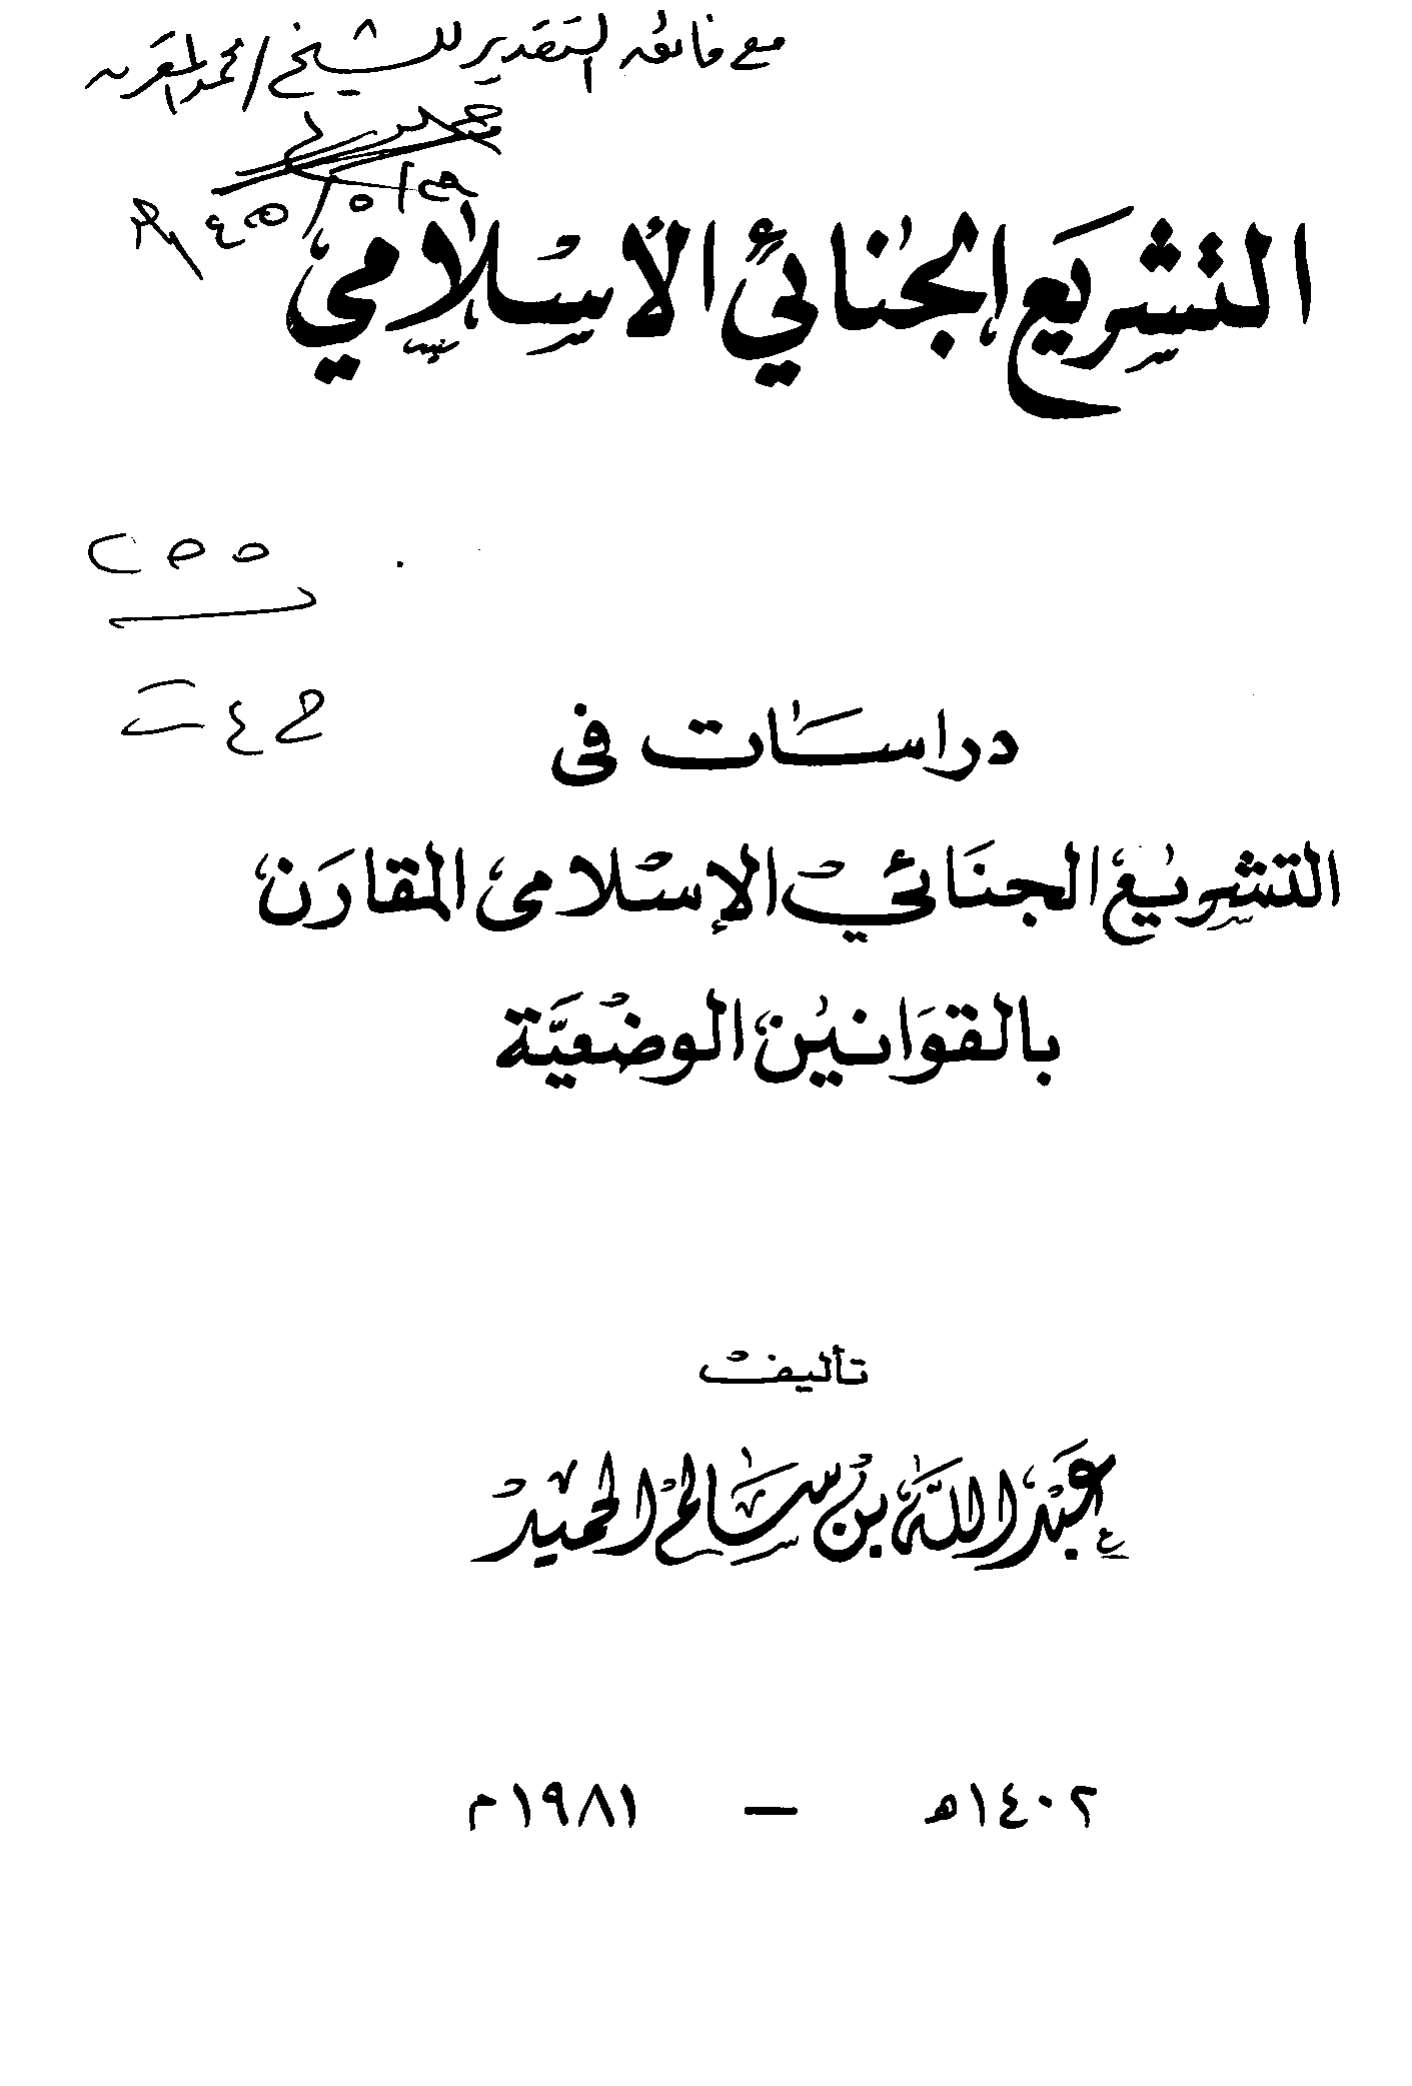 مع فائق التقدير للشيخ / محمد المقرن
التشريع الجنائي الإسلامي
دراسات فى
التشريع الجنائي الإسلامى المقارن
بالقوانين الوضعية
تأليف
عبد الله بن سالم الحميد
١٤٠٢ه — ١٩٨١م